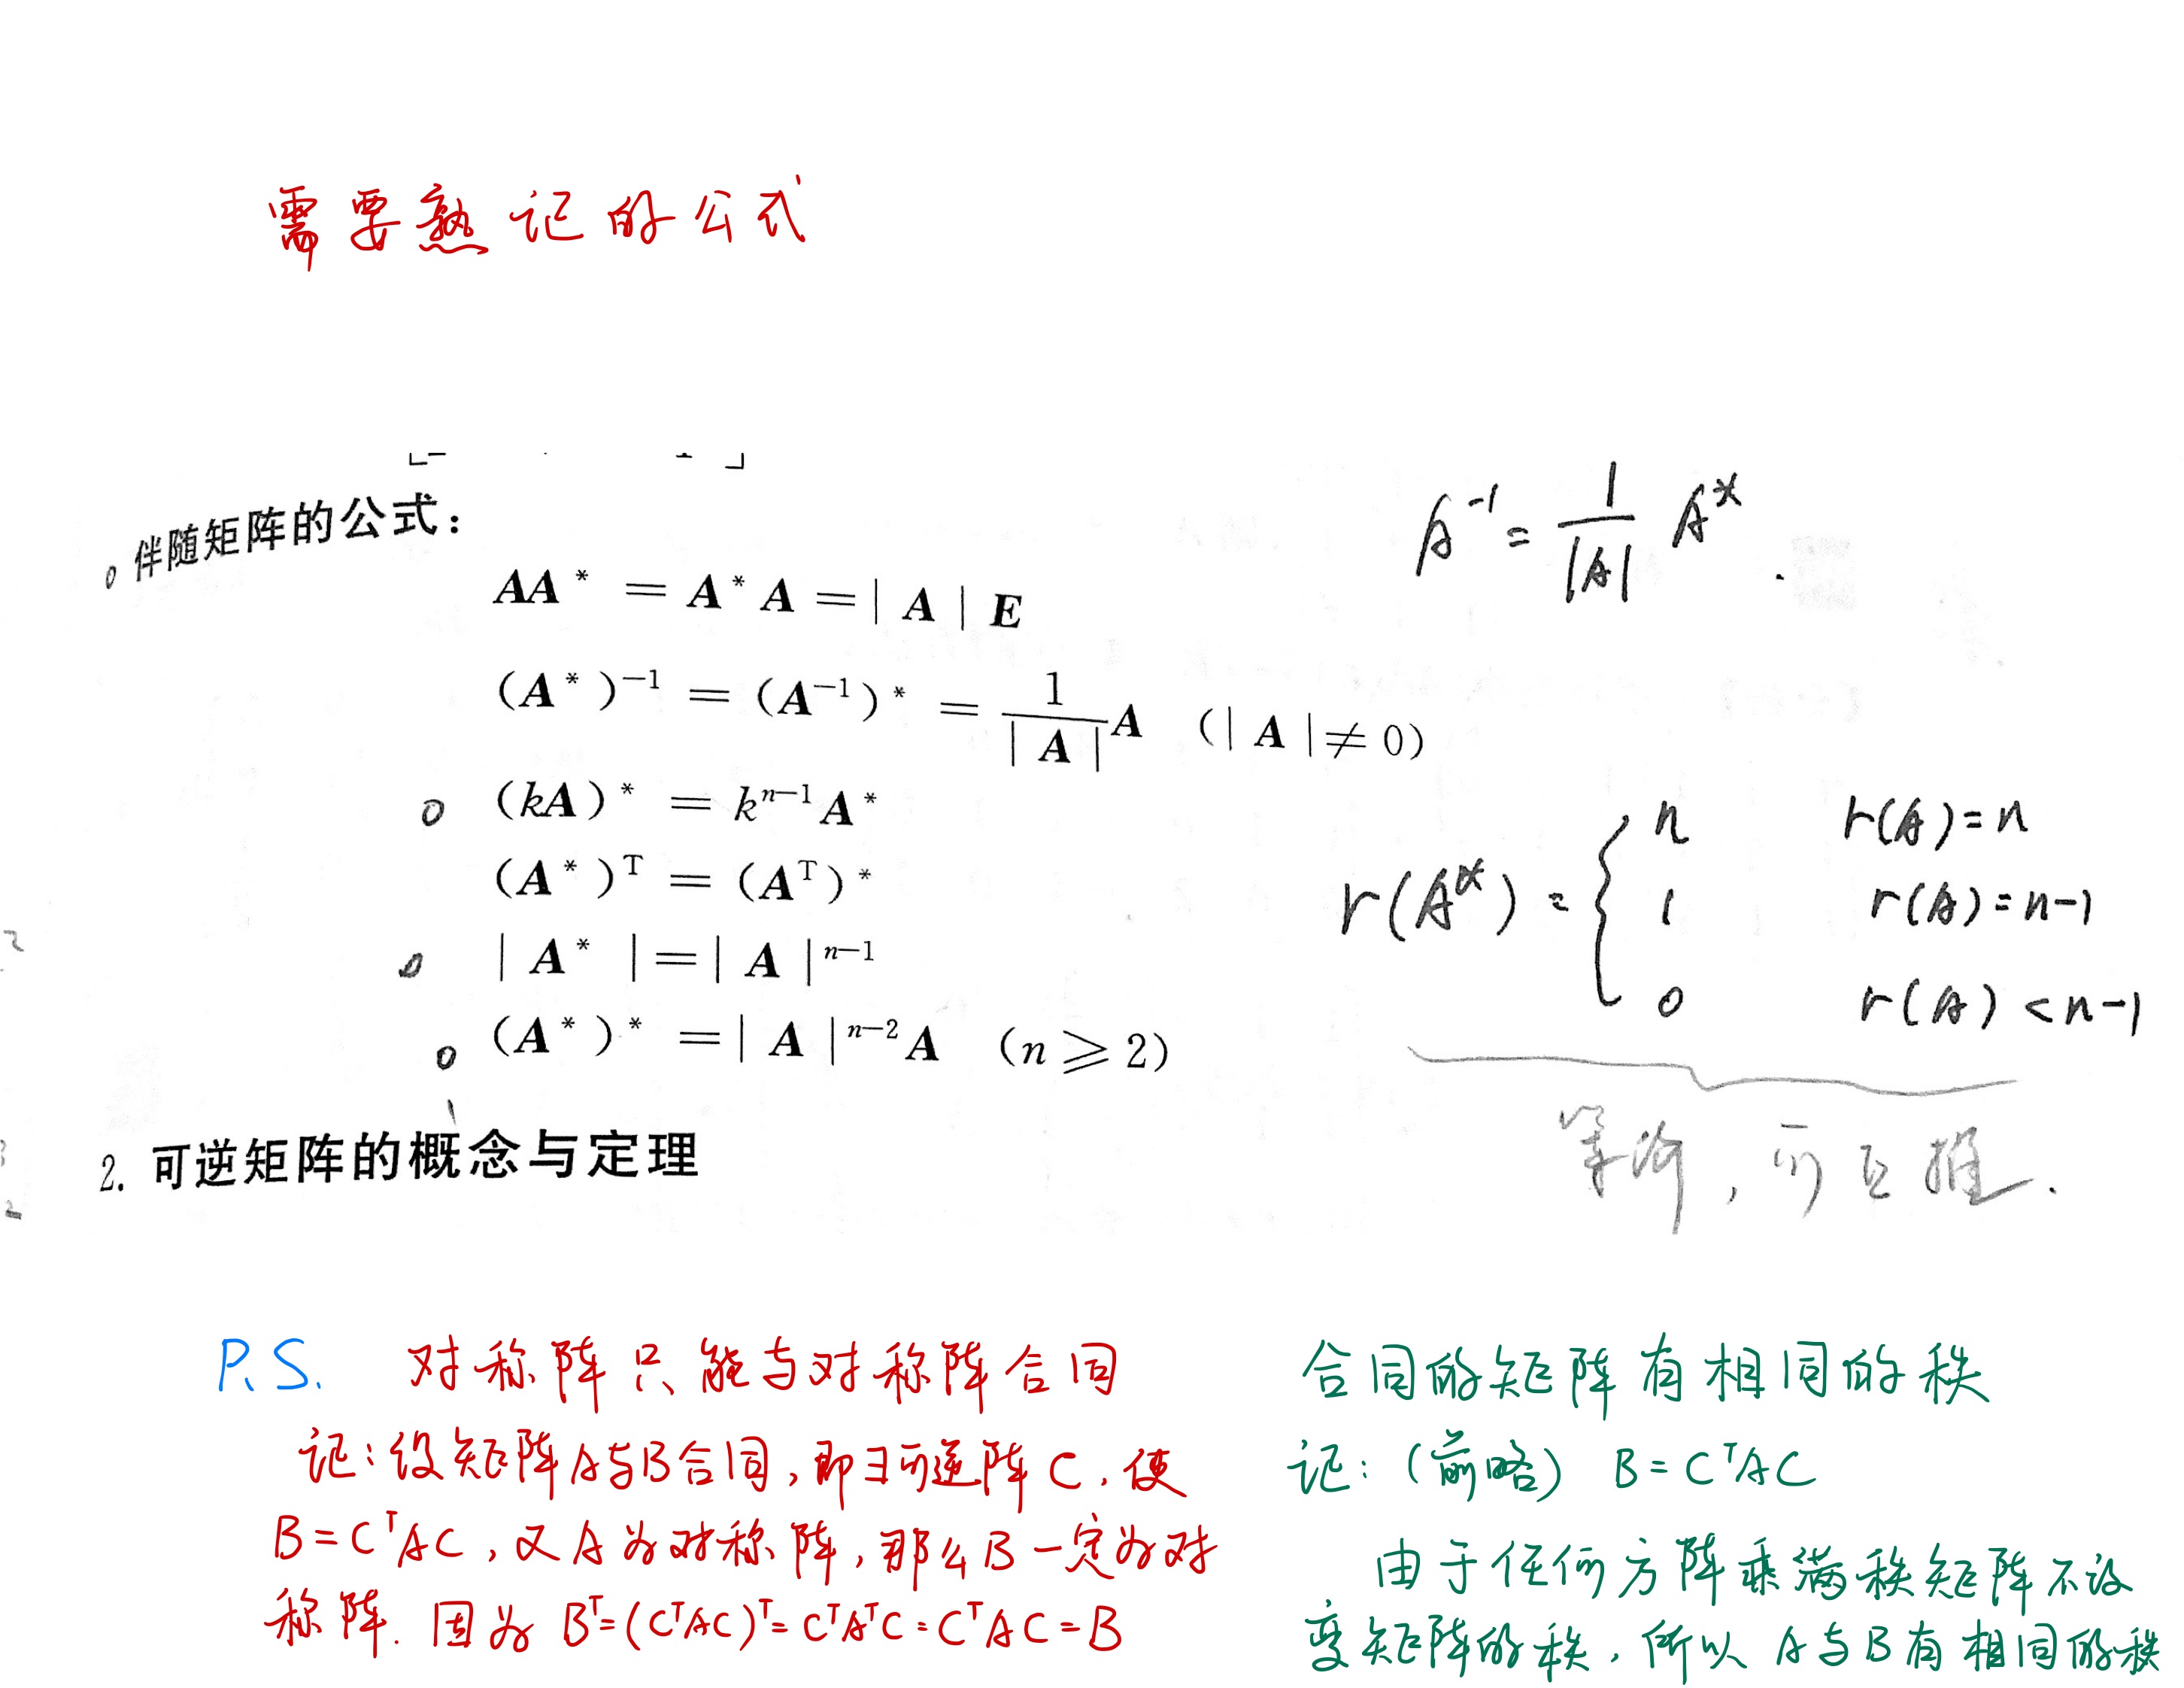 需要熟记的公式
伴随矩阵的公式:
AA* = A*A = | A | E
(A*)⁻¹ = (A⁻¹)* = 1/| A | A (| A | ≠ 0)
(kA)* = kⁿ⁻¹A*
(A*)ᵀ = (Aᵀ)*
| A* | = | A |ⁿ⁻¹
(A*)* = | A |ⁿ⁻²A (n ⩾ 2)
A⁻¹ = 1/|A| A* .
r(A*) = { n r(A)=n
1 r(A)=n-1
0 r(A)<n-1
等价, 可互推.
2. 可逆矩阵的概念与定理
P.S. 对称阵只能与对称阵合同
记:设矩阵A与B合同,即∃可逆阵C,使
B=CᵀAC,又A为对称阵,那么B一定为对
称阵. 因为 Bᵀ=(CᵀAC)ᵀ=CᵀAᵀC=CᵀAC=B
合同的矩阵有相同的秩
记:(前略) B=CᵀAC
由于任何方阵乘满秩矩阵不改
变矩阵的秩,所以A与B有相同的秩